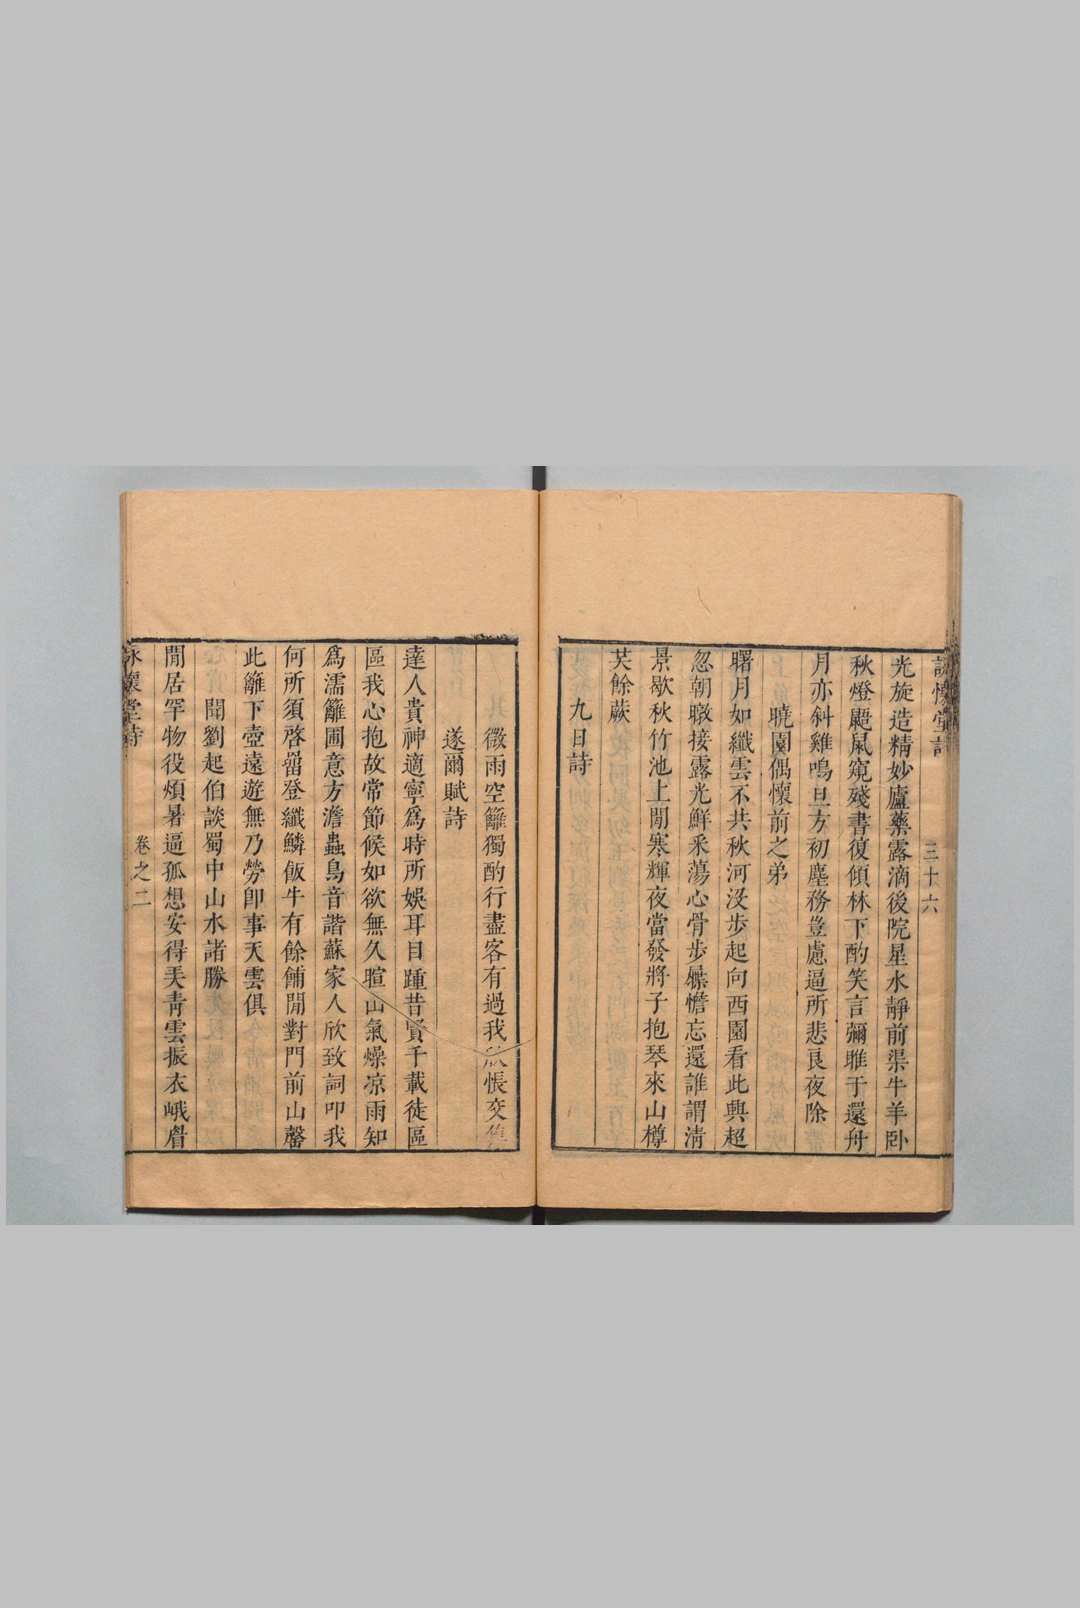 詠懷堂詩
三十六
光旋造精妙廬藥露滴後院星水靜前渠牛羊卧
秋燈鼯鼠窺殘書復傾林下酌笑言彌雎于還舟
月亦斜雞鳴旦方初塵務豈慮逼所悲良夜除
曉園偶懷前之弟
曙月如纖雲不共秋河没步起向西園看此興超
忽朝暾接露光鮮釆蕩心骨步屧憺忘還誰謂清
景歇秋竹池上閒寒輝夜當發將子抱琴來山樽
芙餘蕨
九日詩
微雨空籬獨酌行盡客有過我 悵交
遂爾賦詩
達人貴神適寧爲時所娛耳目踵昔賢千載徒區
區我心抱故常節候如欲無久暄山氣燥凉雨知
爲濡籬圃意方澹蟲鳥音諧蘇家人欣致詞叩我
何所須啓甾登纖鱗飯牛有餘餔閒對門前山罄
此籬下壺遠遊無乃勞卽事天雲俱
聞劉起伯談蜀中山水諸勝
閒居罕物役煩暑逼孤想安得天靑雲振衣峨眉
詠懷堂詩
卷之二